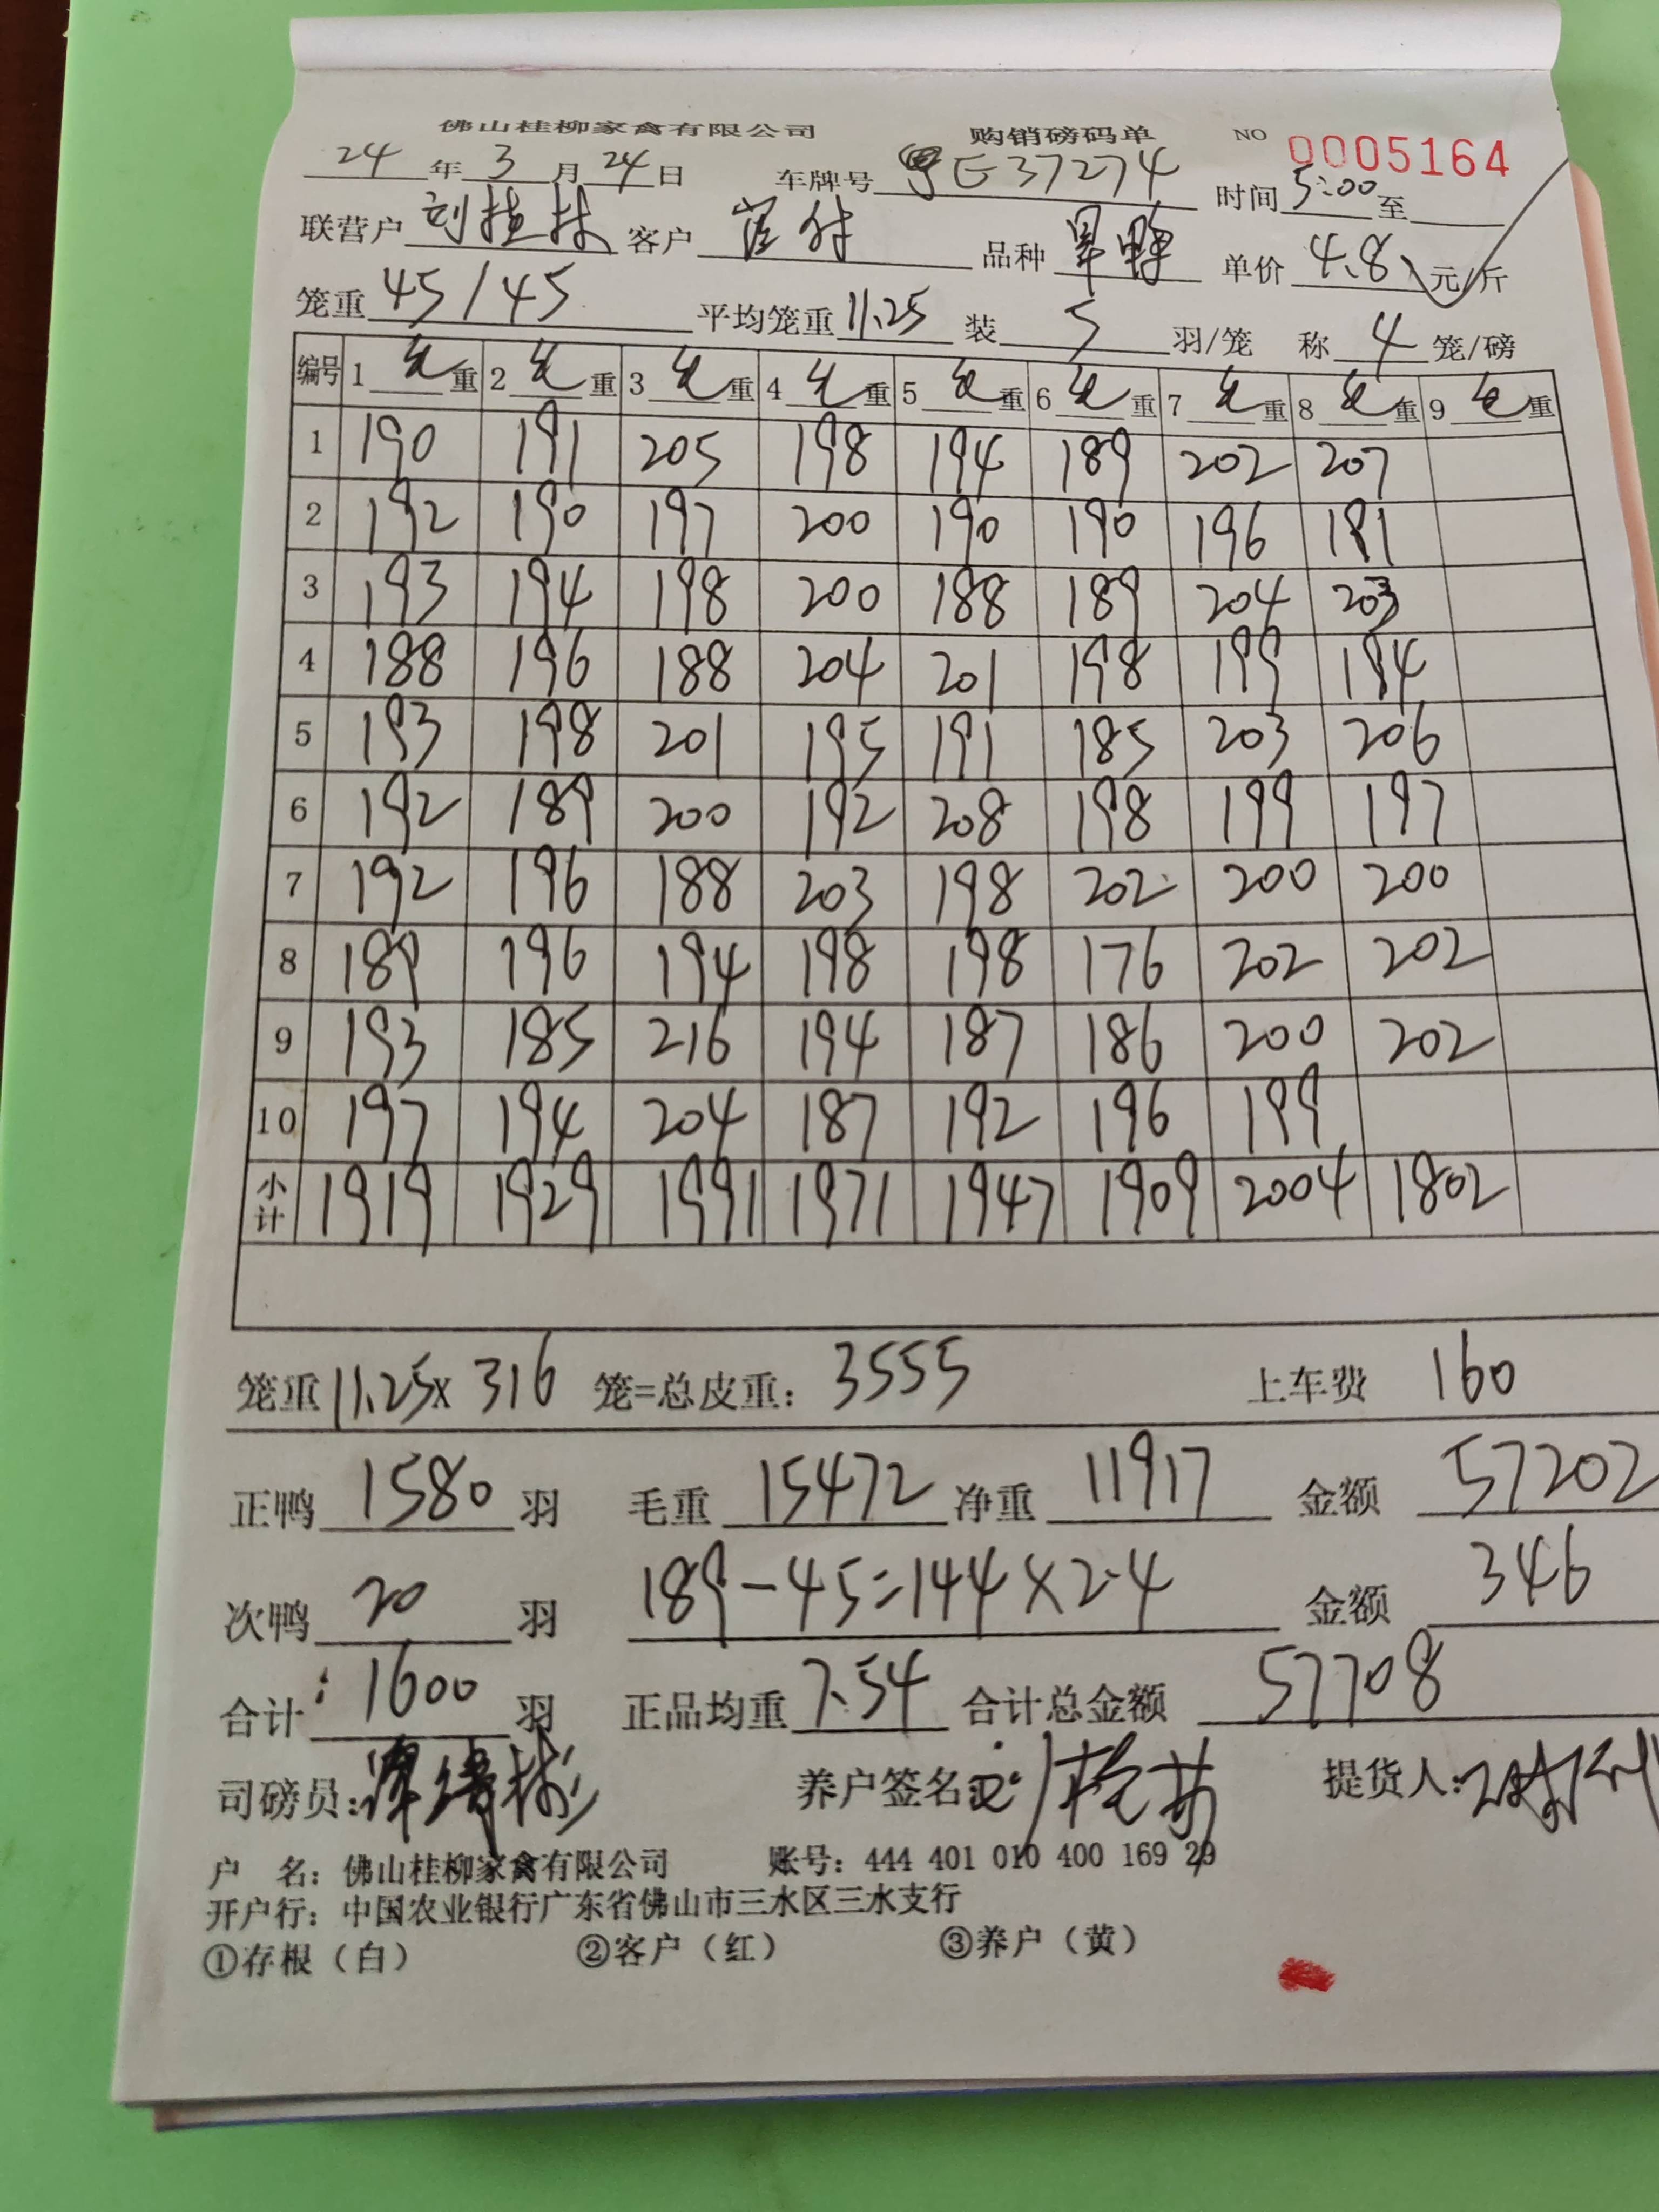 佛山桂柳家禽有限公司 购销磅码单 NO 0005164
24年3月24日 车牌号 粤E37274 时间 5:00 至
联营户 刘桂林 客户 品种 旱鸭 单价 4.8 元/斤
笼重 45/45 平均笼重 11.25 装 5 羽/笼 称 4 笼/磅
编号 1 毛重 2 毛重 3 毛重 4 毛重 5 毛重 6 毛重 7 毛重 8 毛重 9 毛重
1 190 191 205 198 194 189 202 207
2 192 190 197 200 190 190 196 191
3 193 194 198 200 188 189 204 203
4 188 196 188 204 201 198 199 194
5 193 198 201 195 191 185 203 206
6 192 189 200 192 208 198 199 197
7 192 196 188 203 198 202 200 200
8 189 196 194 198 198 176 202 202
9 193 185 216 194 187 186 200 202
10 197 194 204 187 192 196 199
小计 1919 1929 1991 1971 1947 1909 2004 1802
笼重 11.25 x 316 笼=总皮重: 3555 上车费 160
正鸭 1580 羽 毛重 15472 净重 11917 金额 57202
次鸭 20 羽 189-45=144×2.4 金额 346
合计: 1600 羽 正品均重 7.54 合计总金额 57708
司磅员: 养户签名: 提货人:
户 名: 佛山桂柳家禽有限公司 账号: 444 401 010 400 169 29
开户行: 中国农业银行广东省佛山市三水区三水支行
①存根（白） ②客户（红） ③养户（黄）